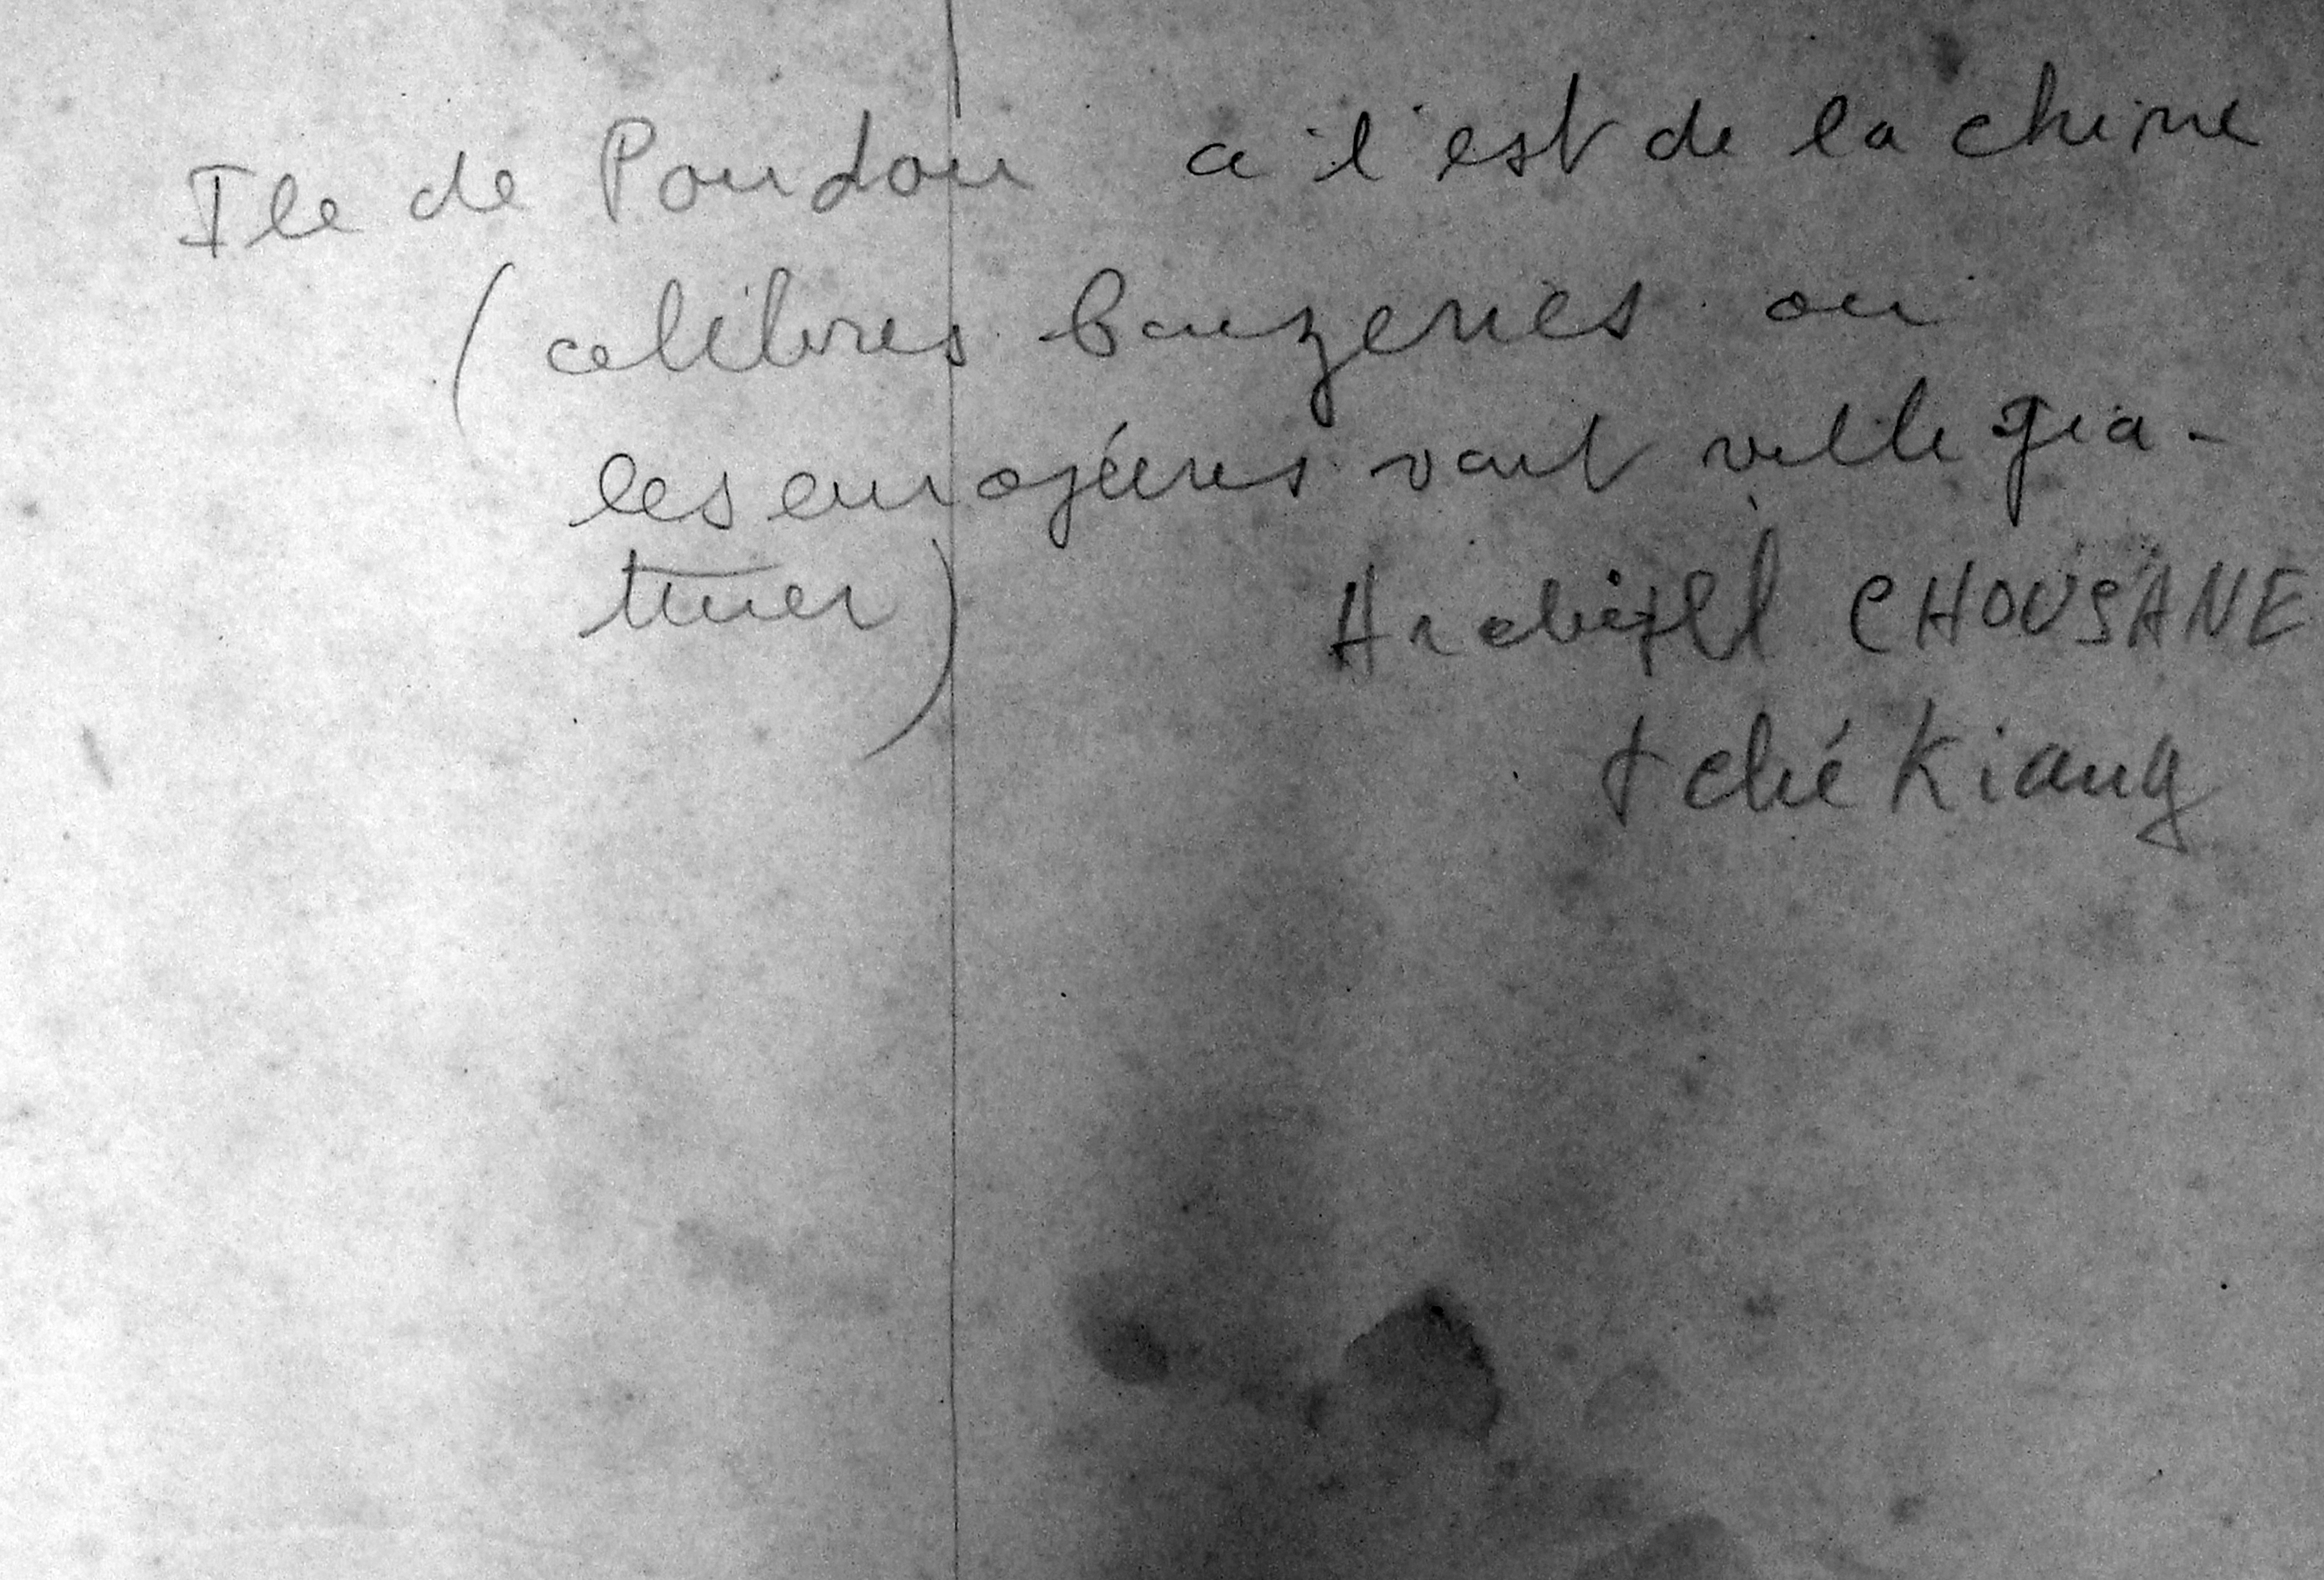 Ile de Poudou a l'est de la chine
(celibres bonzeries ou
les européens vont ville gia-
turer)
Archipel CHOUSANE
tché Kiang